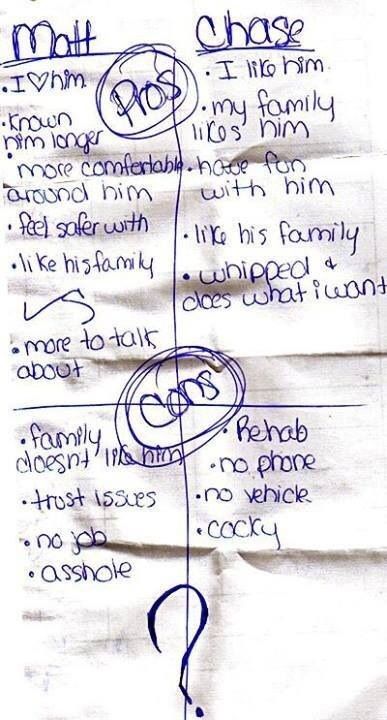 Matt
Pros
• I ♡ him
• known
him longer
• more comfertable
around him
• feel safer with
• like his family
• more to talk
about
Chase
• I like him
• my family
likes him
• have fun
with him
• like his family
• whipped &
does what i want
Cons
• family
doesnt like him
• trust issues
• no job
• asshole
• Rehab
• no phone
• no vehicle
• cocky
?